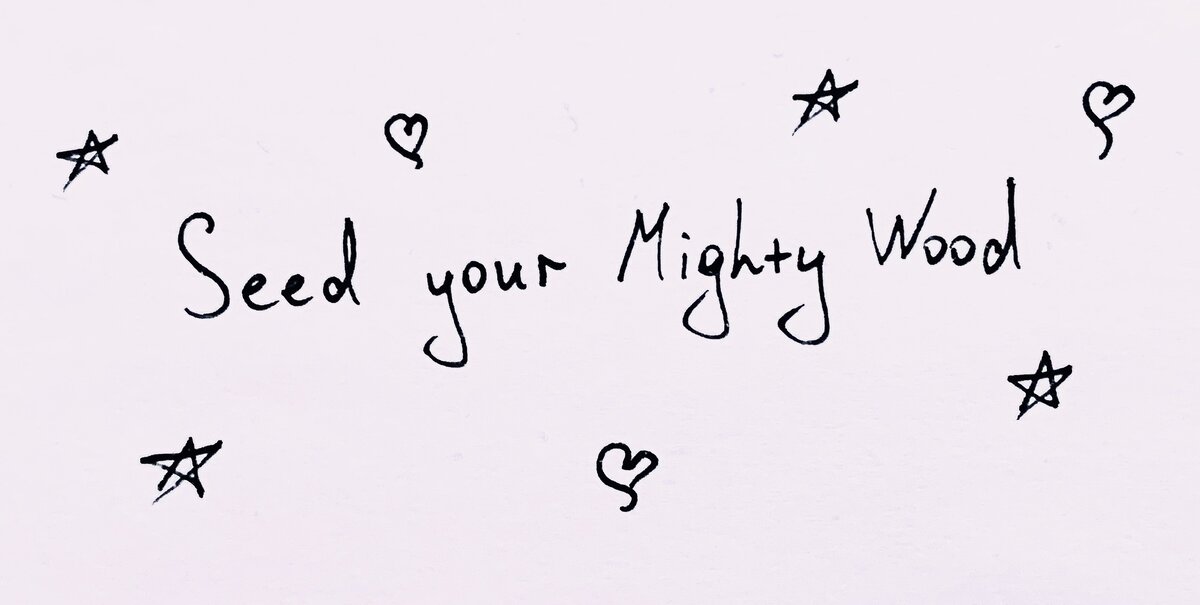 Seed your Mighty Wood